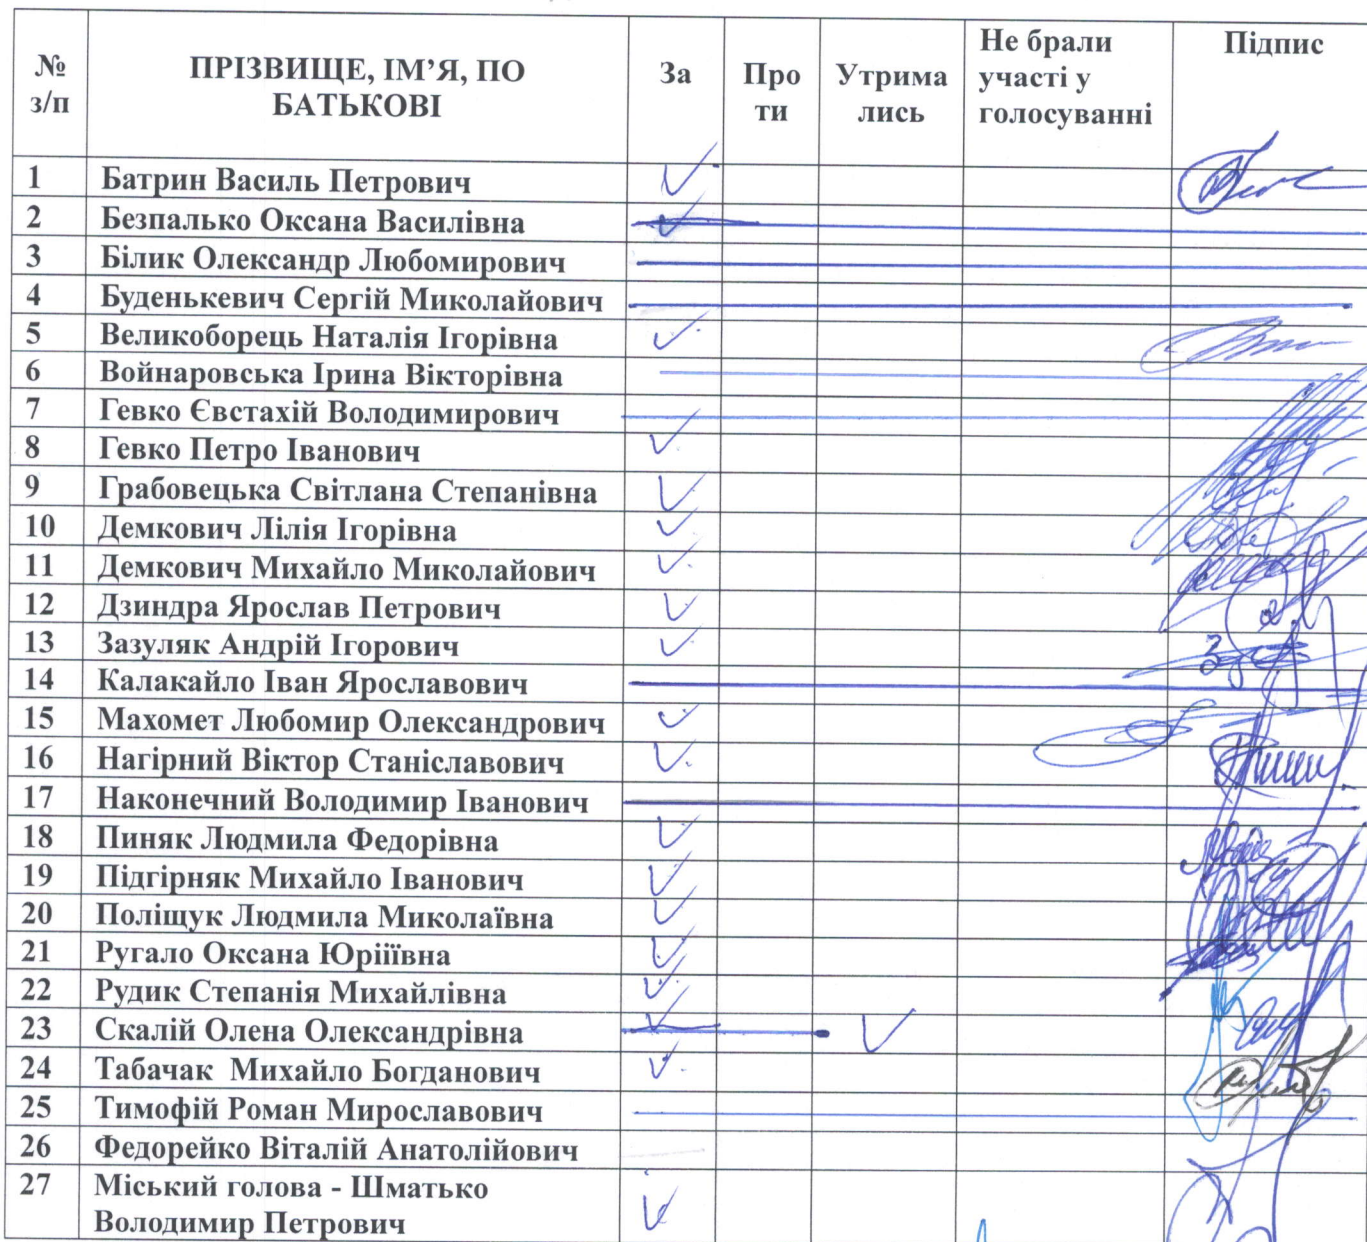 № з/п
ПРІЗВИЩЕ, ІМ’Я, ПО БАТЬКОВІ
За
Про
ти
Утрима
лись
Не брали
участі у
голосуванні
Підпис
1 Батрин Василь Петрович ✓
2 Безпалько Оксана Василівна
3 Білик Олександр Любомирович
4 Буденькевич Сергій Миколайович
5 Великоборець Наталія Ігорівна ✓
6 Войнаровська Ірина Вікторівна
7 Гевко Євстахій Володимирович
8 Гевко Петро Іванович ✓
9 Грабовецька Світлана Степанівна ✓
10 Демкович Лілія Ігорівна ✓
11 Демкович Михайло Миколайович ✓
12 Дзиндра Ярослав Петрович ✓
13 Зазуляк Андрій Ігорович ✓
14 Калакайло Іван Ярославович
15 Махомет Любомир Олександрович ✓
16 Нагірний Віктор Станіславович ✓
17 Наконечний Володимир Іванович
18 Пиняк Людмила Федорівна ✓
19 Підгірняк Михайло Іванович ✓
20 Поліщук Людмила Миколаївна ✓
21 Ругало Оксана Юріїївна ✓
22 Рудик Степанія Михайлівна ✓
23 Скалій Олена Олександрівна ✓
24 Табачак Михайло Богданович ✓
25 Тимофій Роман Мирославович
26 Федорейко Віталій Анатолійович
27 Міський голова - Шматько
Володимир Петрович ✓